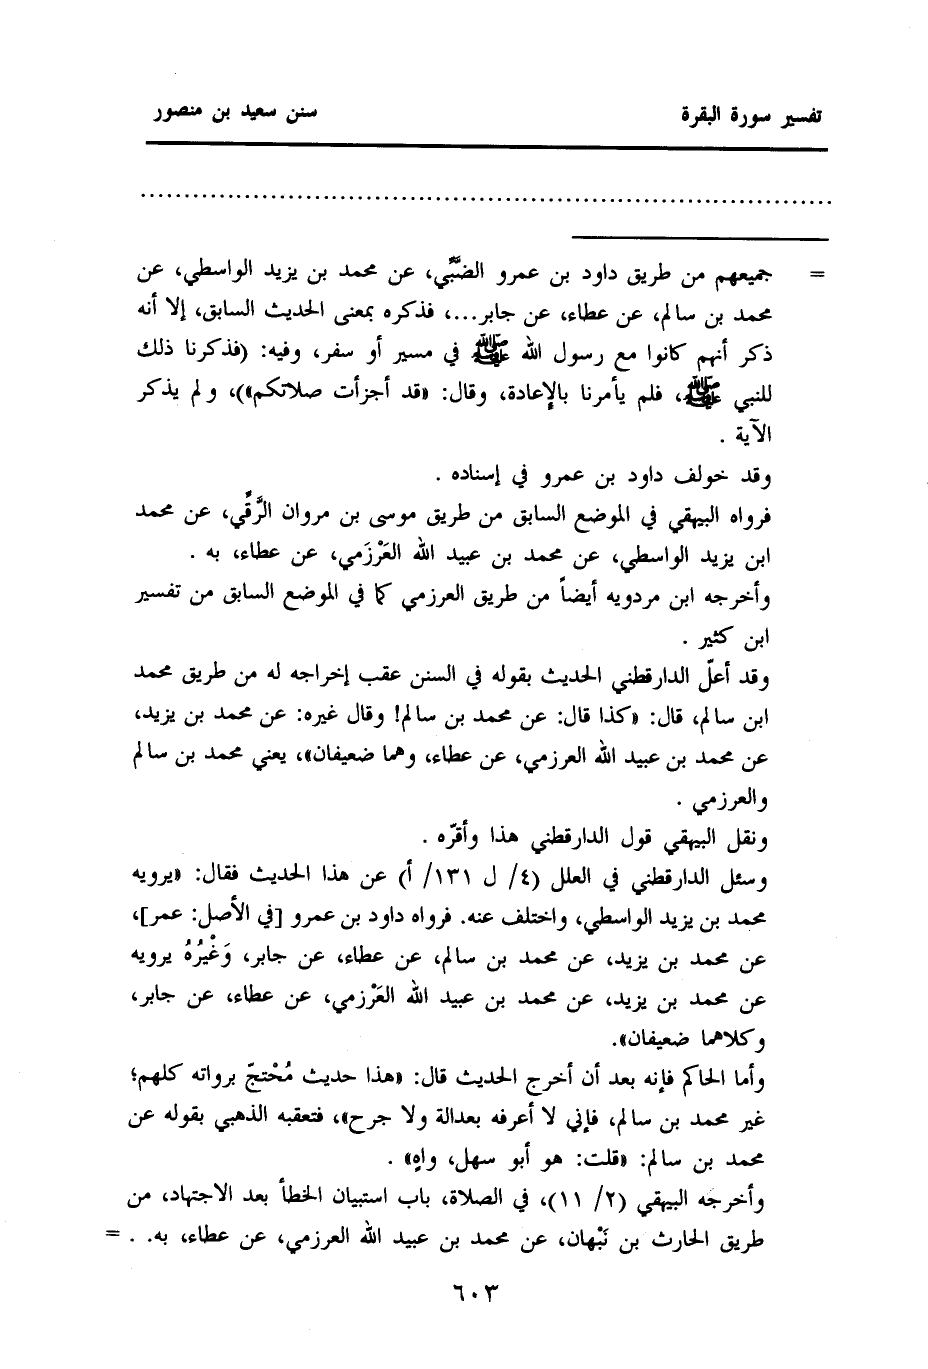 تفسير سورة البقرة سنن سعيد بن منصور
= جميعهم من طريق داود بن عمرو الضَّبِّي، عن محمد بن يزيد الواسطي، عن
محمد بن سالم، عن عطاء، عن جابر...، فذكره بمعنى الحديث السابق، إلا أنه
ذكر أنهم كانوا مع رسول الله ﷺ في مسير أو سفر، وفيه: (فذكرنا ذلك
للنبي ﷺ، فلم يأمرنا بالإعادة، وقال: «قد أجزأت صلاتكم»)، ولم يذكر
الآية .
وقد خولف داود بن عمرو في إسناده .
فرواه البيهقي في الموضع السابق من طريق موسى بن مروان الرَّقِّي، عن محمد
ابن يزيد الواسطي، عن محمد بن عبيد الله العَرْزَمي، عن عطاء، به .
وأخرجه ابن مردويه أيضاً من طريق العرزمي كما في الموضع السابق من تفسير
ابن كثير .
وقد أعلّ الدارقطني الحديث بقوله في السنن عقب إخراجه له من طريق محمد
ابن سالم، قال: «كذا قال: عن محمد بن سالم! وقال غيره: عن محمد بن يزيد،
عن محمد بن عبيد الله العرزمي، عن عطاء، وهما ضعيفان»، يعني محمد بن سالم
والعرزمي .
ونقل البيهقي قول الدارقطني هذا وأقرّه .
وسئل الدارقطني في العلل (٤/ ل ١٣١/ أ) عن هذا الحديث فقال: «يرويه
محمد بن يزيد الواسطي، واختلف عنه. فرواه داود بن عمرو [في الأصل: عمر]،
عن محمد بن يزيد، عن محمد بن سالم، عن عطاء، عن جابر، وَغْيُرُهُ يرويه
عن محمد بن يزيد، عن محمد بن عبيد الله العَرْزمي، عن عطاء، عن جابر،
وكلاهما ضعيفان».
وأما الحاكم فإنه بعد أن أخرج الحديث قال: «هذا حديث مُحْتجّ برواته كلهم؛
غير محمد بن سالم، فإني لا أعرفه بعدالة ولا جرح»، فتعقبه الذهبي بقوله عن
محمد بن سالم: «قلت: هو أبو سهل، واهٍ» .
وأخرجه البيهقي (٢/ ١١)، في الصلاة، باب استبيان الخطأ بعد الاجتهاد، من
طريق الحارث بن نَبْهان، عن محمد بن عبيد الله العرزمي، عن عطاء، به. . =
٦٠٣